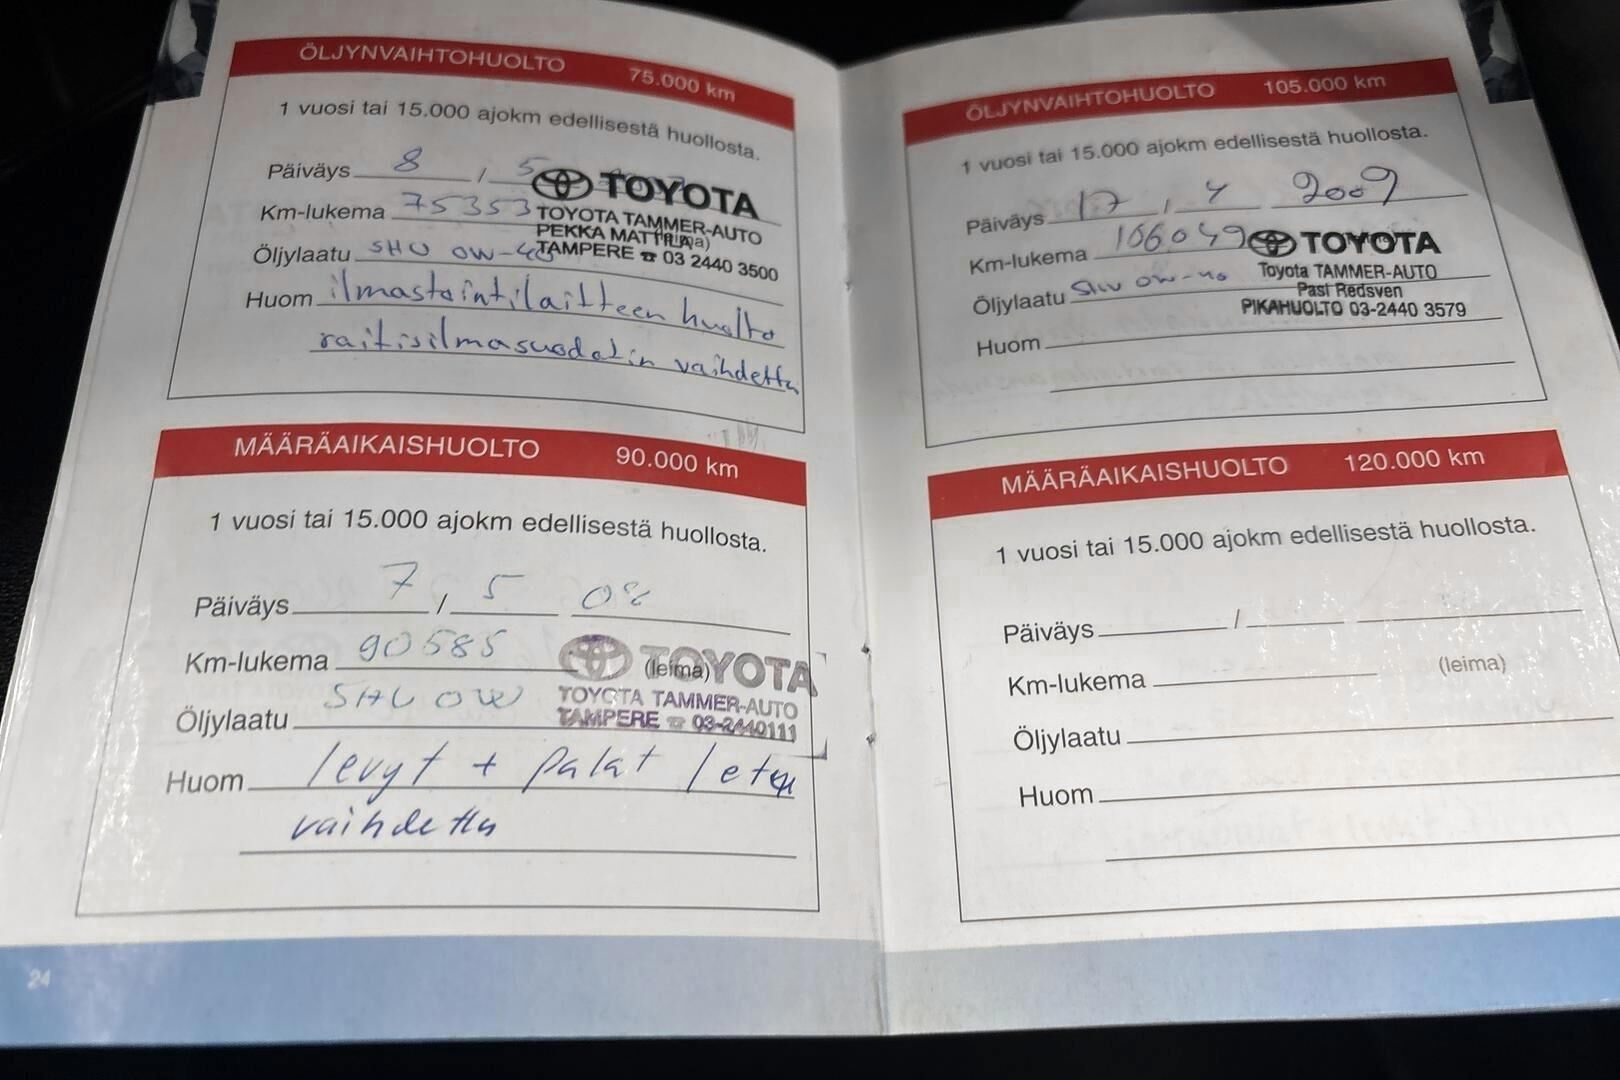 ÖLJYNVAIHTOHUOLTO 75.000 km
1 vuosi tai 15.000 ajokm edellisestä huollosta.
Päiväys 8 / 5
TOYOTA
Km-lukema 75353
TOYOTA TAMMER-AUTO
PEKKA MATTILA
Öljylaatu SHU OW-40
TAMPERE ☎ 03 2440 3500
Huom ilmastointilaitteen huolto
raitisilmasuodatin vaihdettu
MÄÄRÄAIKAISHUOLTO 90.000 km
1 vuosi tai 15.000 ajokm edellisestä huollosta.
Päiväys 7 / 5 08
Km-lukema 90585 (leima)
TOYOTA
Öljylaatu SHU OW
TOYOTA TAMMER-AUTO
TAMPERE ☎ 03-2440111
Huom levyt + palat / eteen
vaihdettu
24
ÖLJYNVAIHTOHUOLTO 105.000 km
1 vuosi tai 15.000 ajokm edellisestä huollosta.
Päiväys 17 / 4 2009
Km-lukema 106049
TOYOTA
Öljylaatu SHU OW-40
Toyota TAMMER-AUTO
Pasi Redsven
PIKAHUOLTO 03-2440 3579
Huom
MÄÄRÄAIKAISHUOLTO 120.000 km
1 vuosi tai 15.000 ajokm edellisestä huollosta.
Päiväys /
Km-lukema (leima)
Öljylaatu
Huom